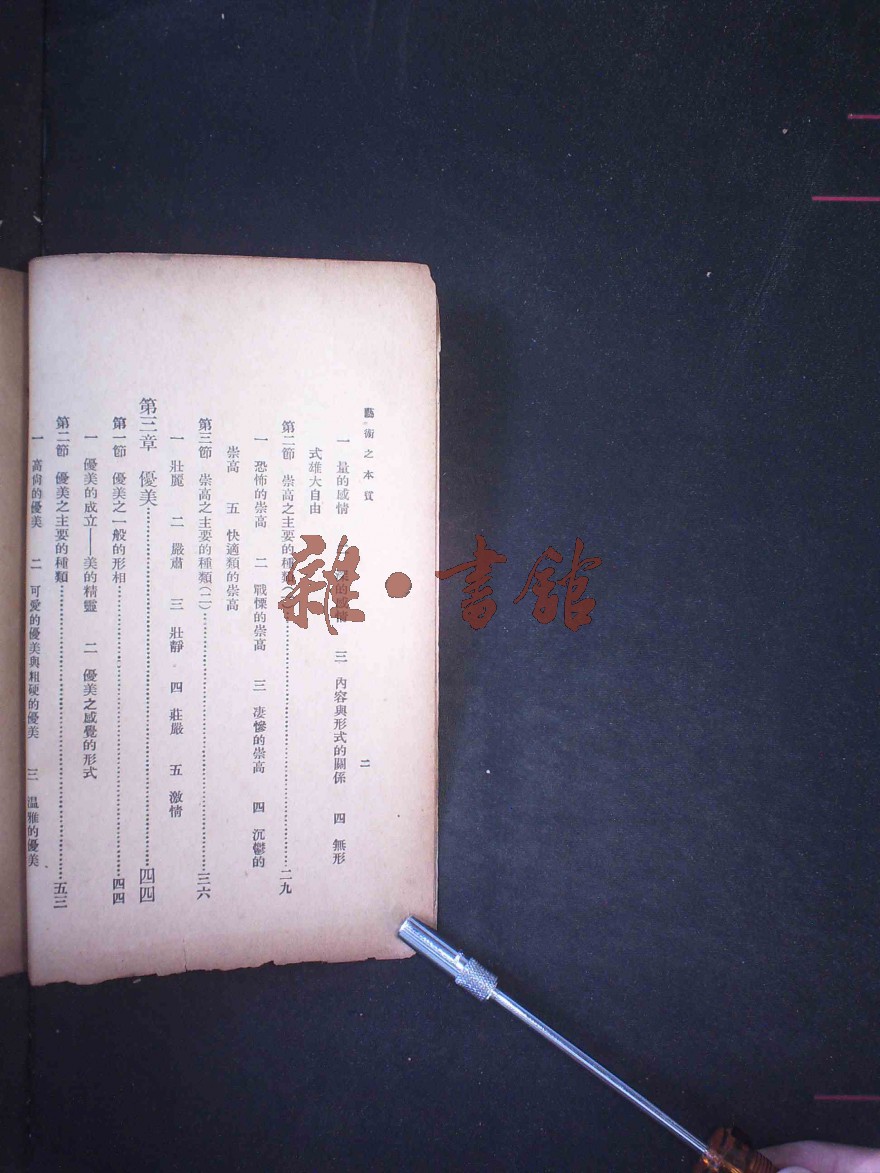 藝術之本質
二
一 量的感情 的感情 三 內容與形式的關係 四 無形
式雄大自由
第二節 崇高之主要的種類 二九
一 恐怖的崇高 二 戰慄的崇高 三 凄慘的崇高 四 沉鬱的
崇高 五 快適類的崇高
第三節 崇高之主要的種類(二) 三六
一 壯麗 二 嚴肅 三 壯靜 四 莊嚴 五 激情
第三章 優美 四四
第一節 優美之一般的形相 四四
一 優美的成立——美的精靈 二 優美之感覺的形式
第二節 優美之主要的種類 五三
一 高尙的優美 二 可愛的優美與粗硬的優美 三 温雅的優美
雜·書館